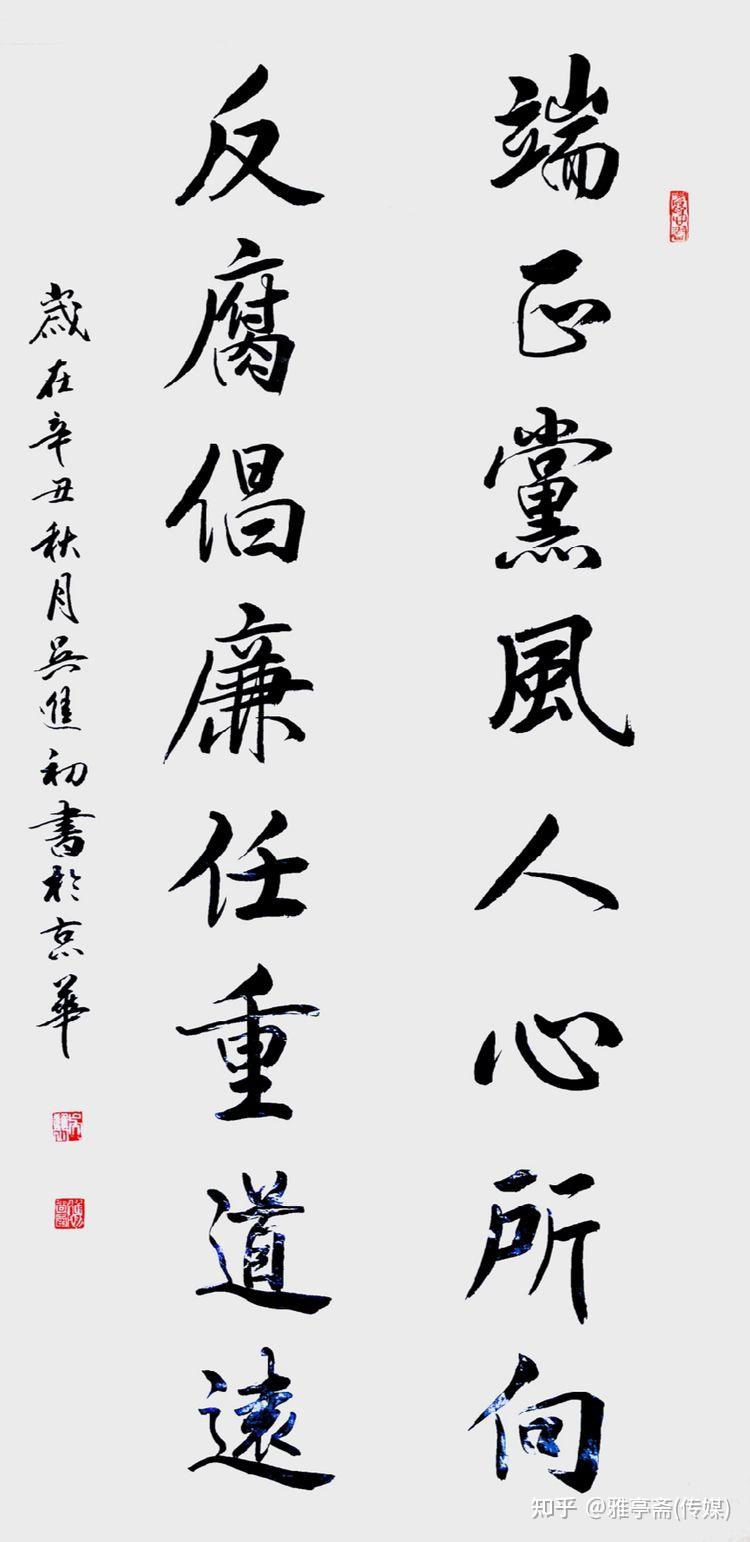 端正黨風人心所向
反腐倡廉任重道遠
歲在辛丑秋月吳進初書於京華
知乎 @雅亭斋(传媒)